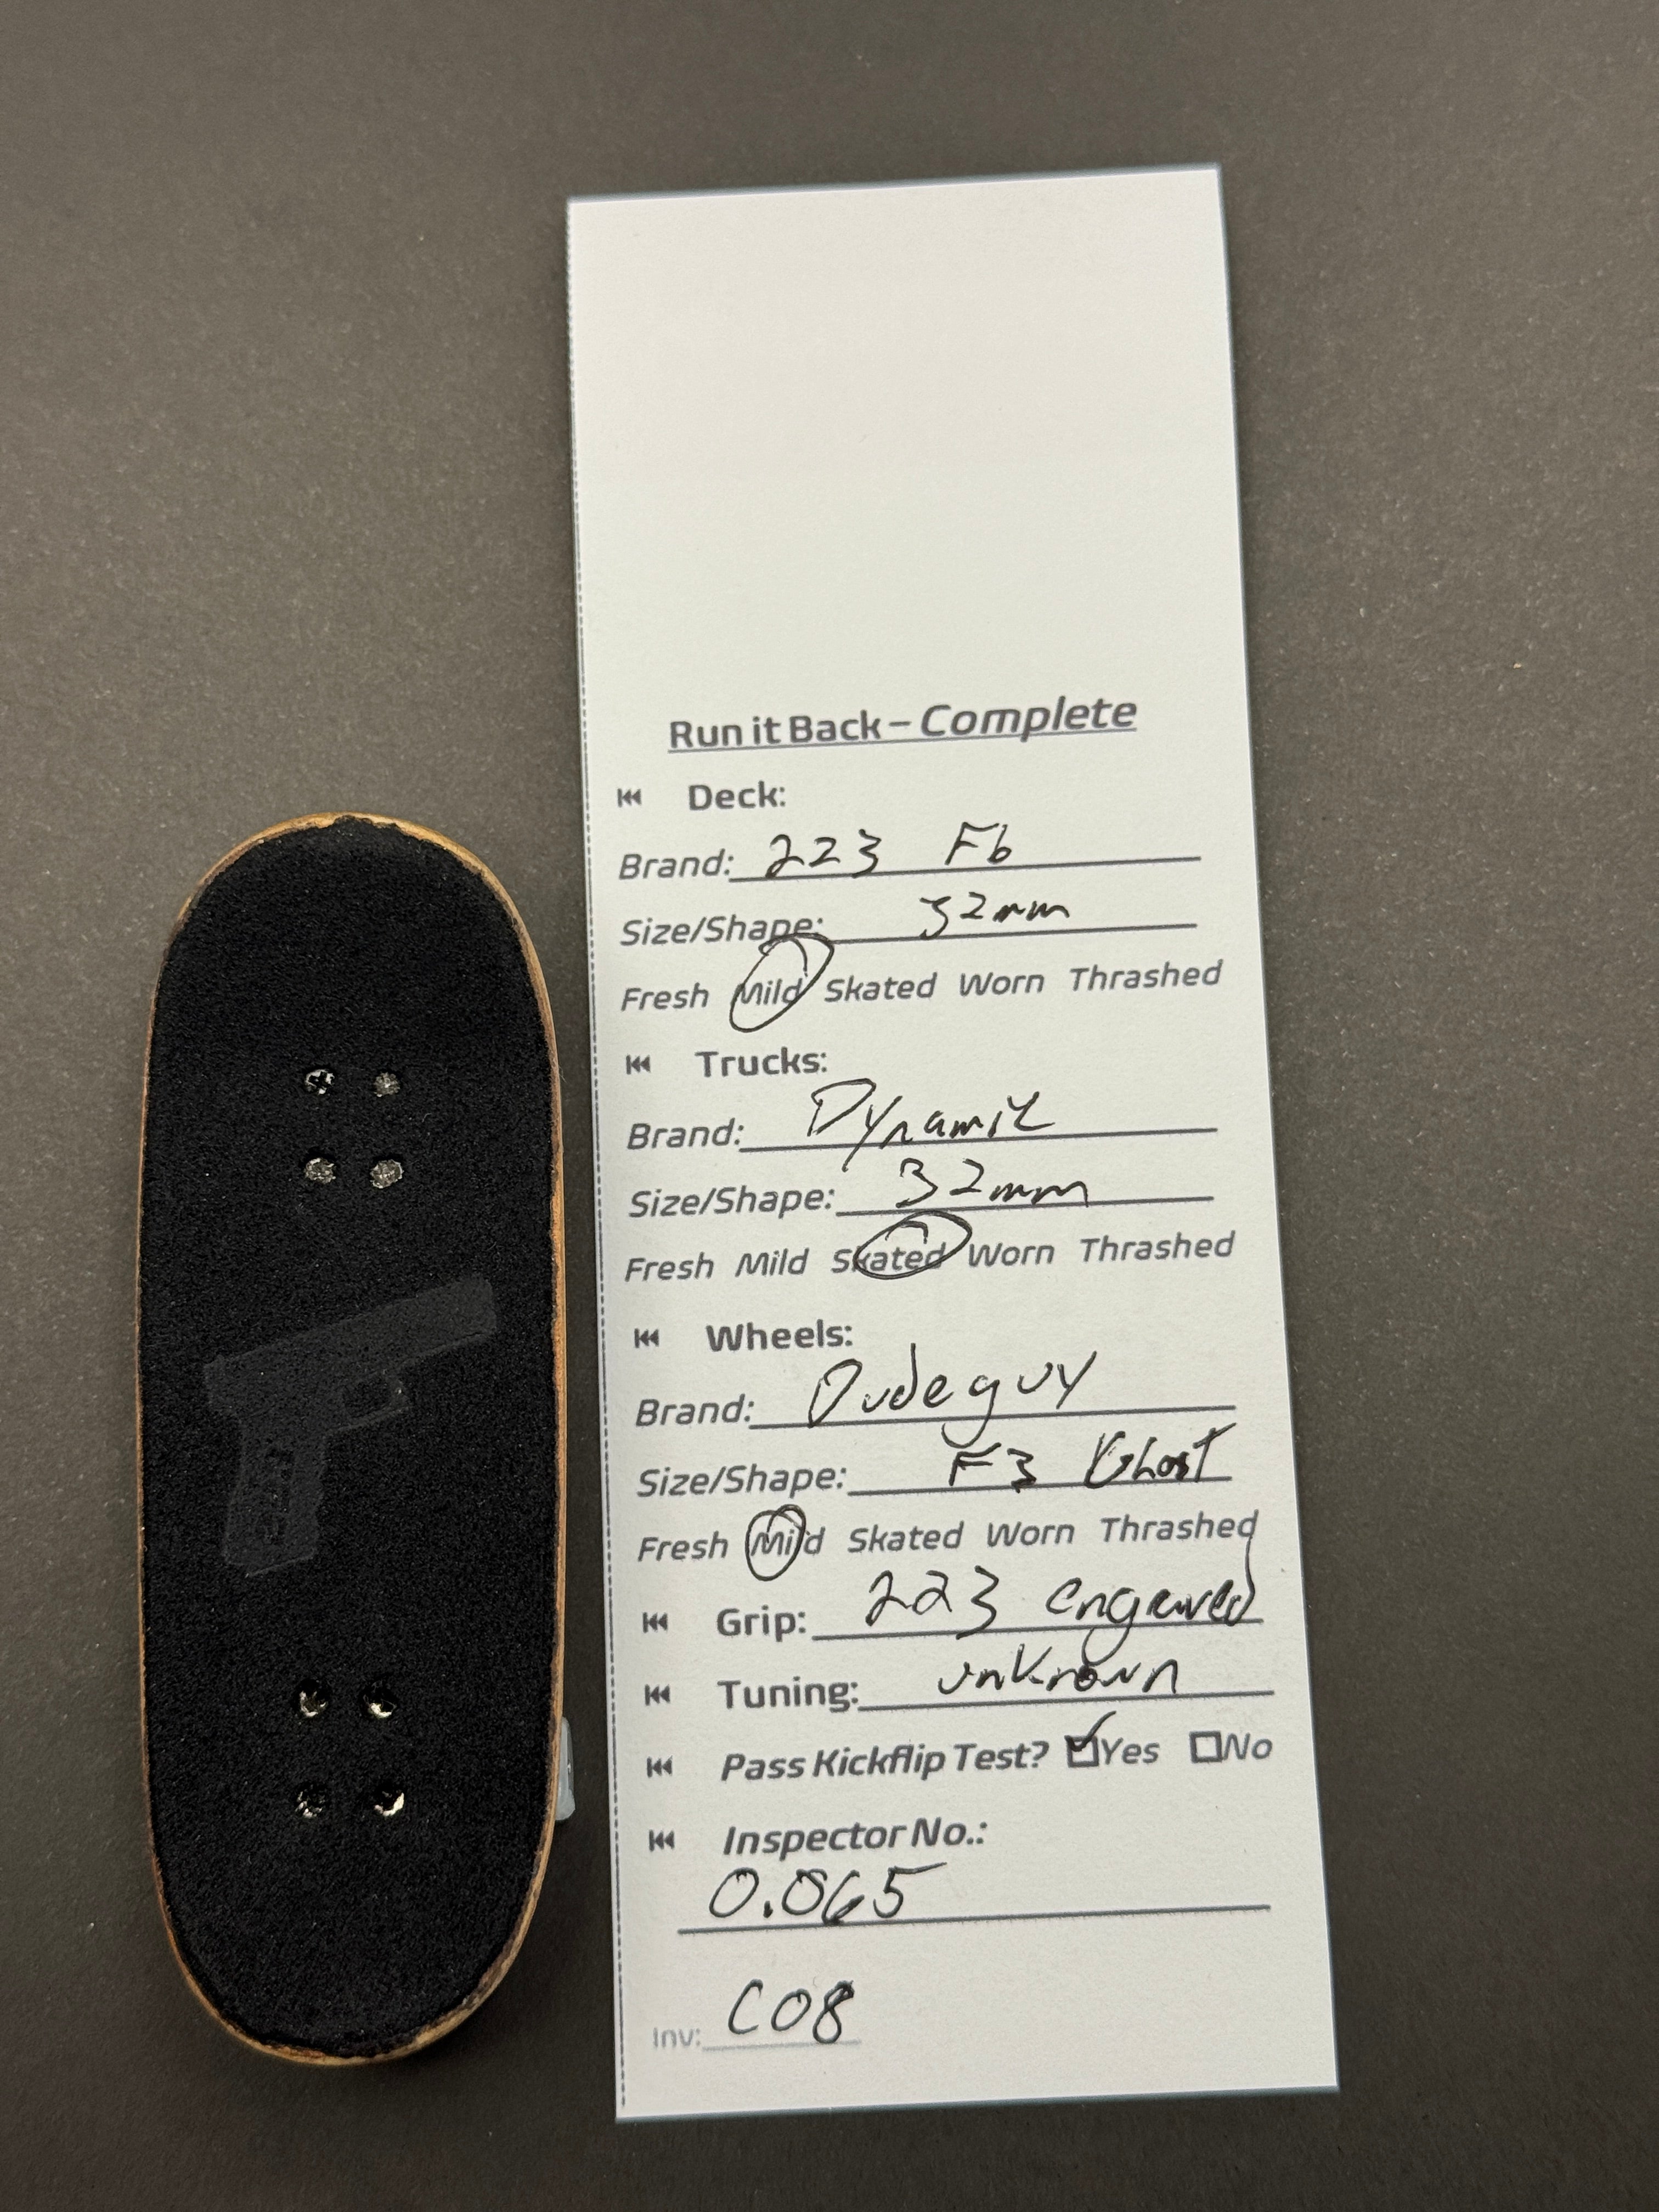 Run it Back – Complete
Deck:
Brand: 223 Fb
Size/Shape: 32mm
Fresh Mild Skated Worn Thrashed
Trucks:
Brand: Dynamic
Size/Shape: 32mm
Fresh Mild Skated Worn Thrashed
Wheels:
Brand: Dudeguy
Size/Shape: F3 Ghost
Fresh Mild Skated Worn Thrashed
Grip: 223 engraved
Tuning: unknown
Pass Kickflip Test? Yes No
Inspector No.:
0.065
Inv: C08